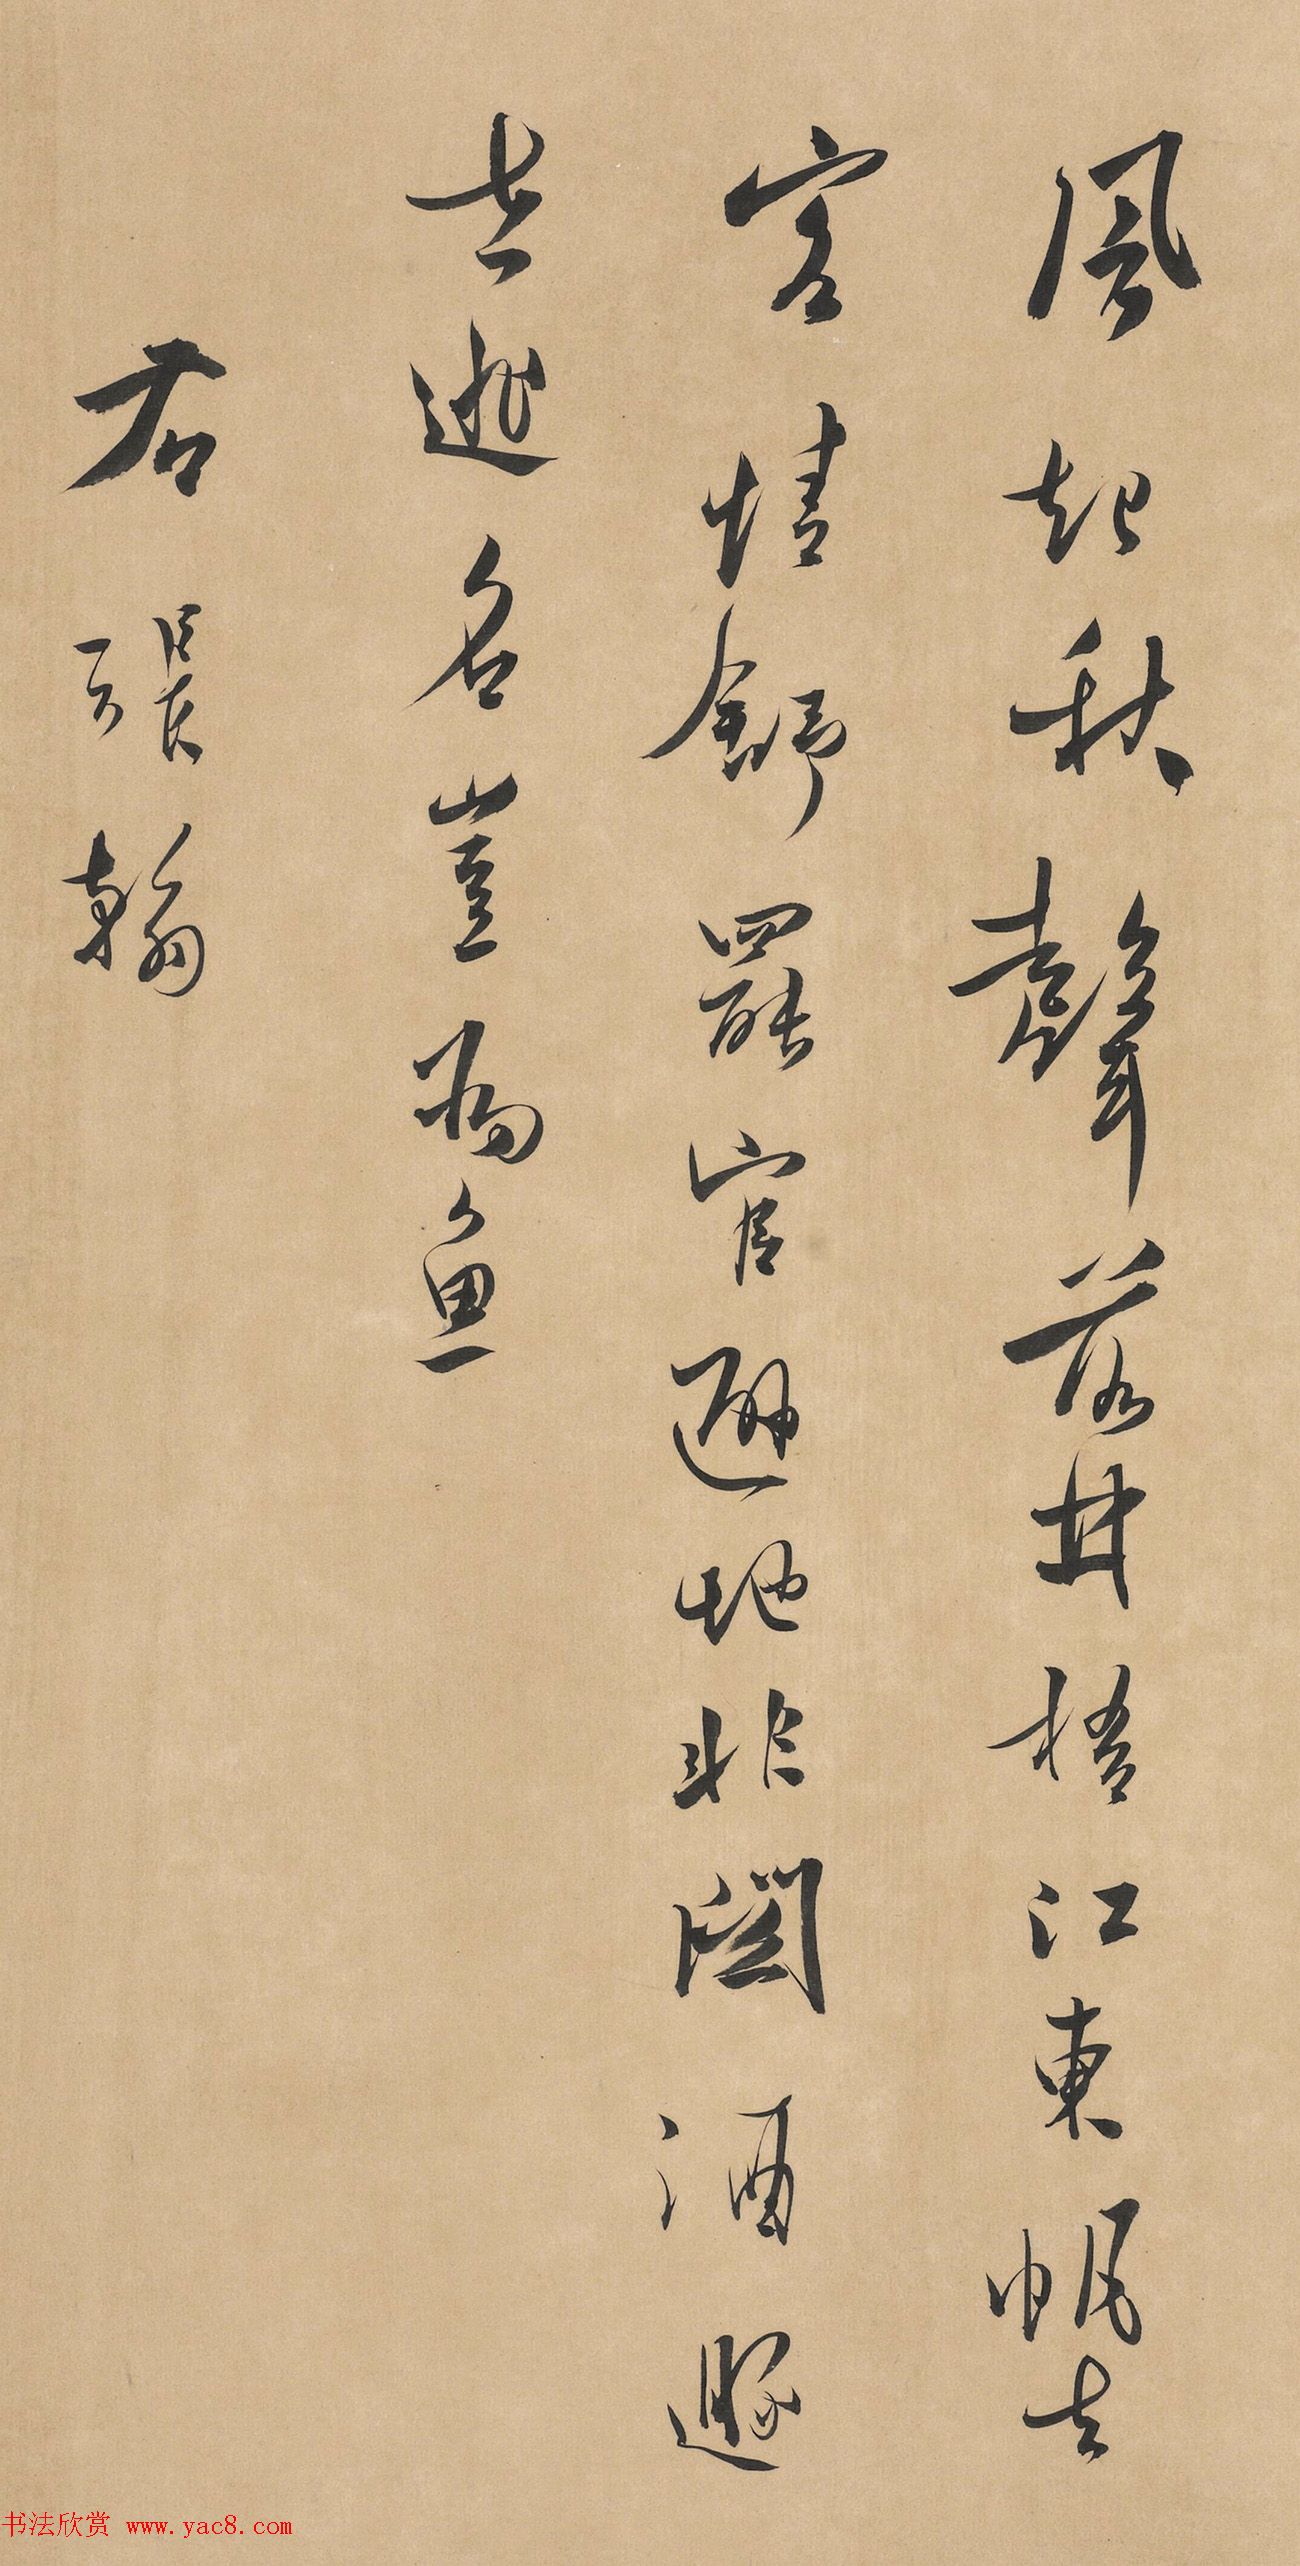 風起秋聲落井梧江東帆去
客情舒罷官避地非關酒遯
去逃名豈為魚
右張翰
书法欣赏 www.yac8.com